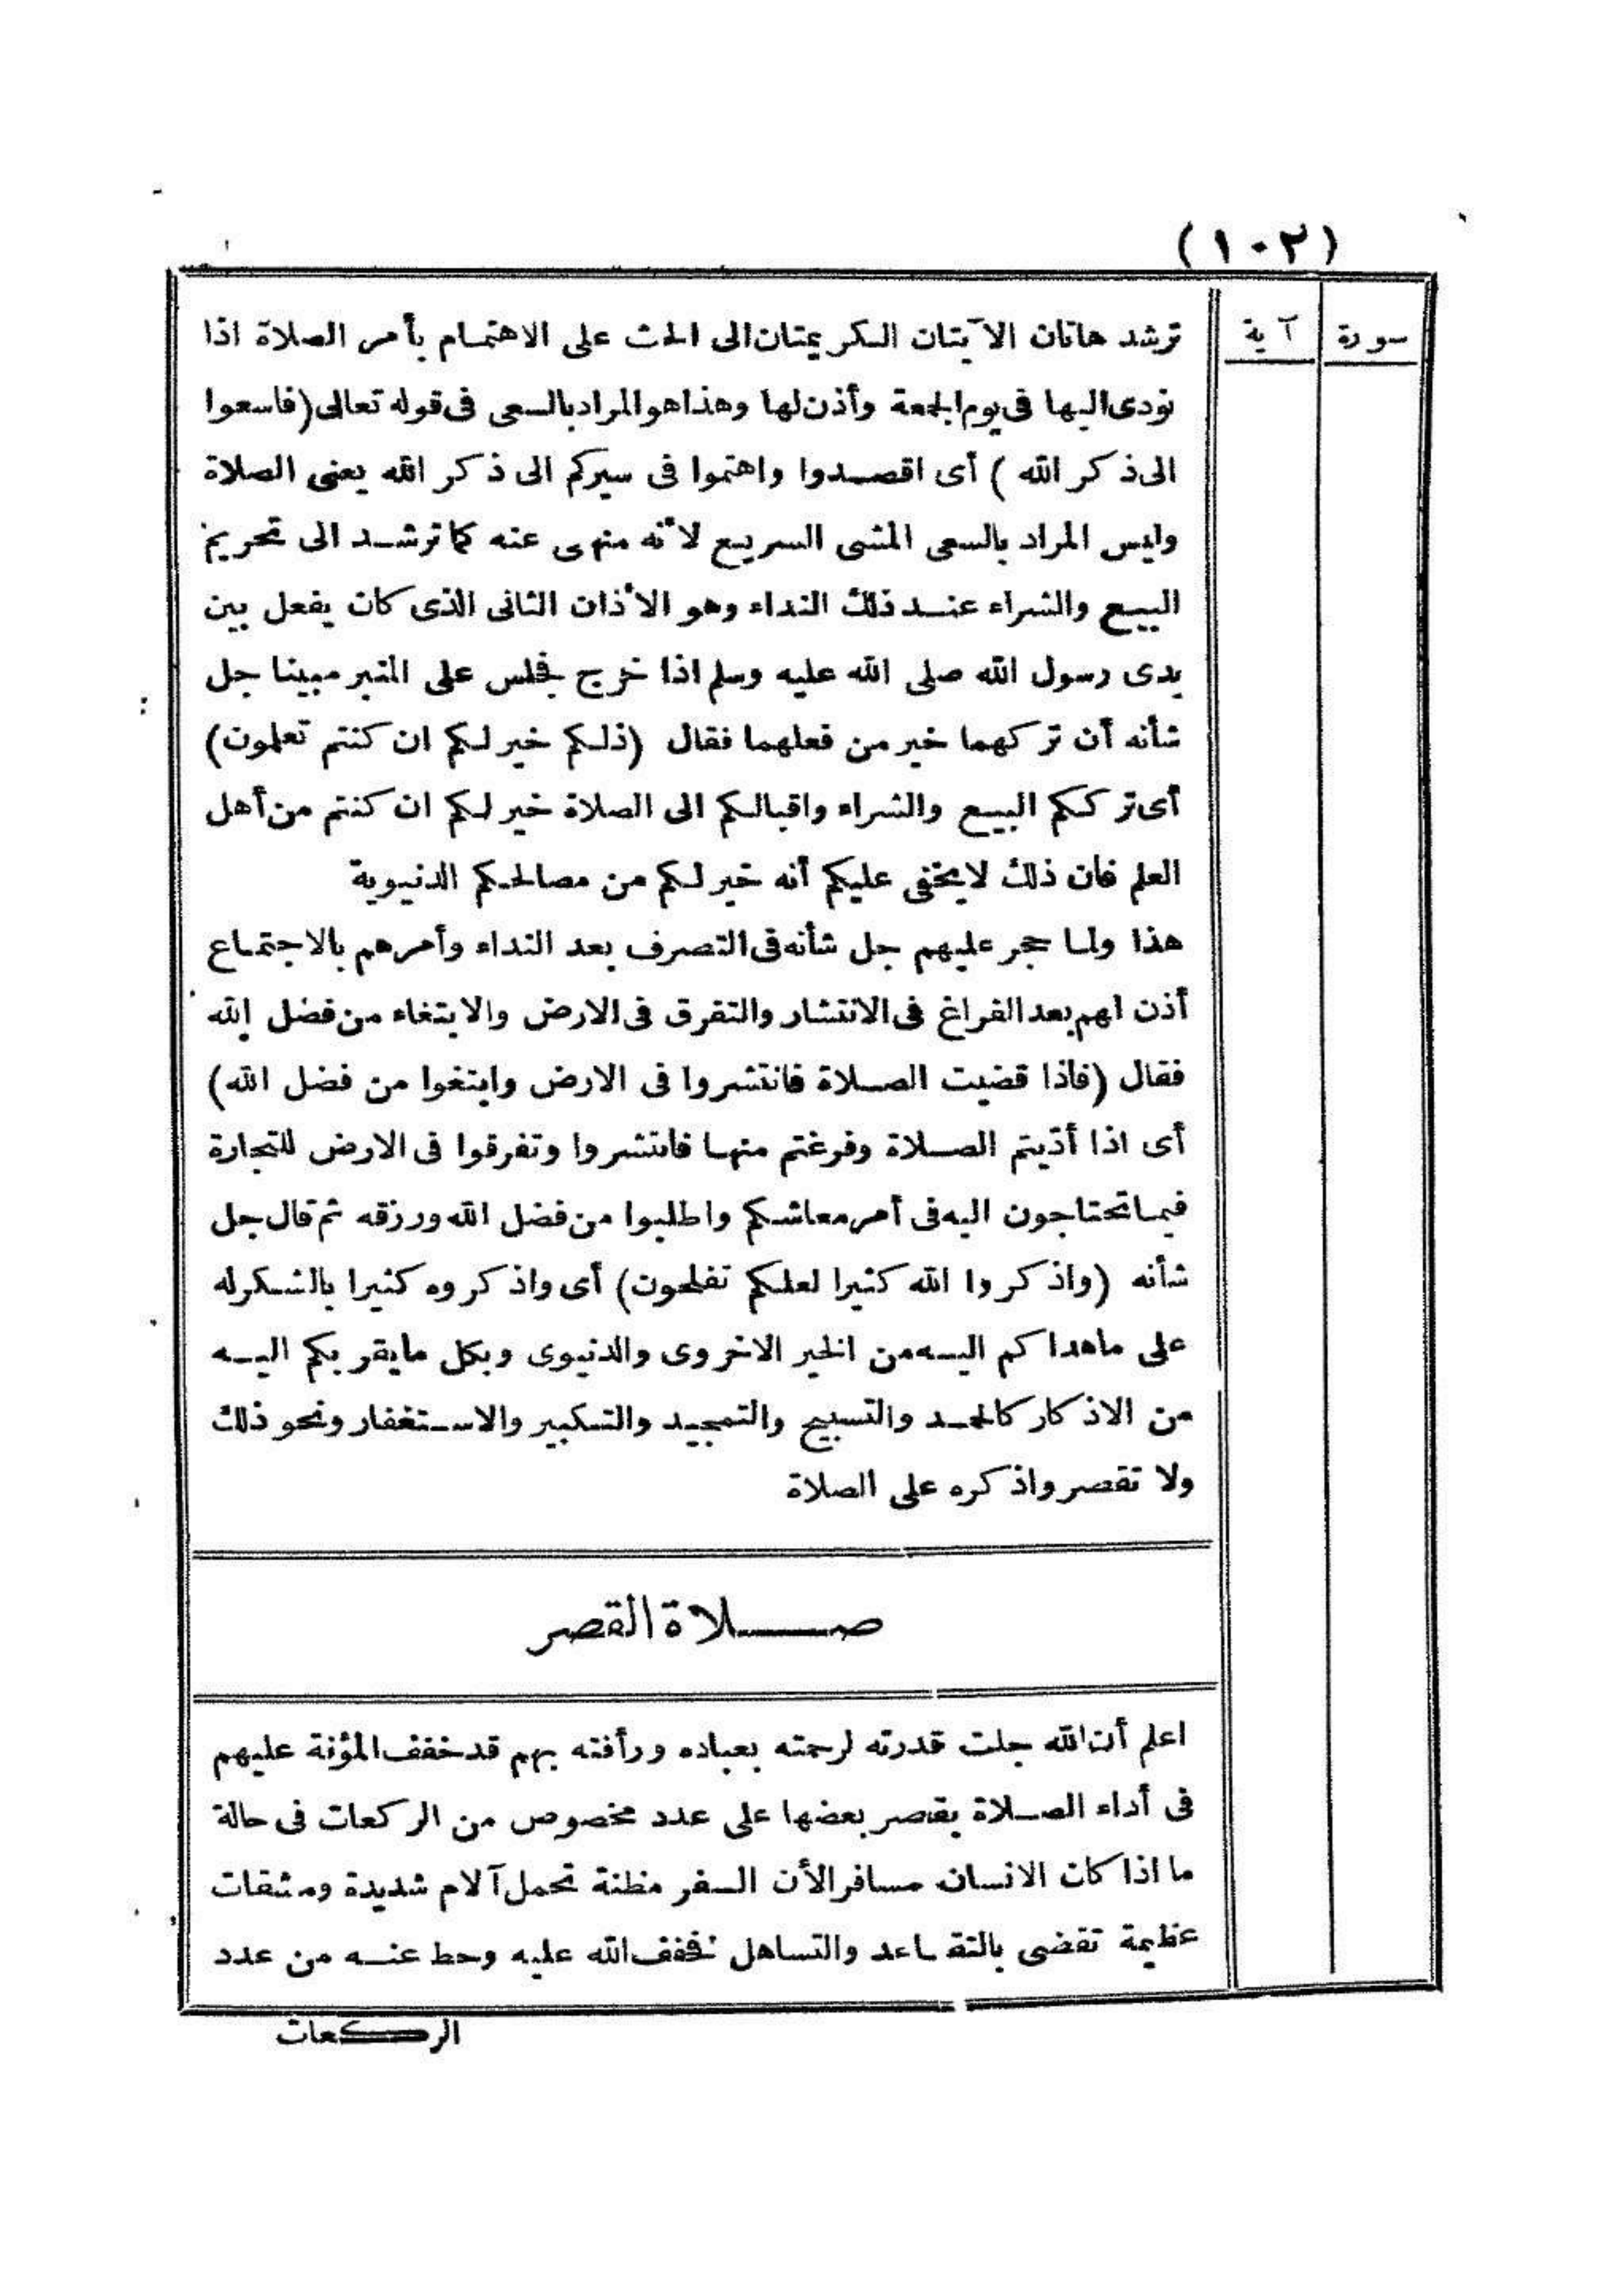 (١٠٢)
سورة
آية
ترشد هاتان الآيتان الكريمتان الى الحث على الاهتمام بأمر الصلاة اذا
نودى اليها فى يوم الجمعة وأذن لها وهذا هو المراد بالسعى فى قوله تعالى (فاسعوا
الى ذكر الله ) أى اقصدوا واهتموا فى سيركم الى ذكر الله يعنى الصلاة
وليس المراد بالسعى المشى السريع لأنه منهى عنه كما ترشد الى تحريم
البيع والشراء عند ذلك النداء وهو الأذان الثانى الذى كان يفعل بين
يدى رسول الله صلى الله عليه وسلم اذا خرج فجلس على المنبر مبينا جل
شأنه أن تركهما خير من فعلهما فقال (ذلكم خير لكم ان كنتم تعلمون)
أى تركم البيع والشراء واقبالكم الى الصلاة خير لكم ان كنتم من أهل
العلم فان ذلك لا يخفى عليكم أنه خير لكم من مصالحكم الدنيوية
هذا ولما حجر عليهم جل شأنه فى التصرف بعد النداء وأمرهم بالاجتماع
أذن لهم بعد الفراغ فى الانتشار والتفرق فى الارض والابتغاء من فضل الله
فقال (فاذا قضيت الصلاة فانتشروا فى الارض وابتغوا من فضل الله)
أى اذا أديتم الصلاة وفرغتم منها فانتشروا وتفرقوا فى الارض للتجارة
فيما تحتاجون اليه فى أمر معاشكم واطلبوا من فضل الله ورزقه ثم قال جل
شأنه (واذكروا الله كثيرا لعلكم تفلحون) أى واذكروه كثيرا بالشكر له
على ما هداكم اليه من الخير الاخروى والدنيوى وبكل ما يقربكم اليه
من الاذكار كالحمد والتسبيح والتمجيد والتكبير والاستغفار ونحو ذلك
ولا تقصروا ذكره على الصلاة
صلاة القصر
اعلم أن الله جلت قدرته لرحمته بعباده ورأفته بهم قد خفف المؤنة عليهم
فى أداء الصلاة بقصر بعضها على عدد مخصوص من الركعات فى حالة
ما اذا كان الانسان مسافرا لأن السفر مظنة تحمل آلام شديدة ومشقات
عظيمة تقضى بالتقاعد والتساهل فخفف الله عليه وحط عنه من عدد
الركعات